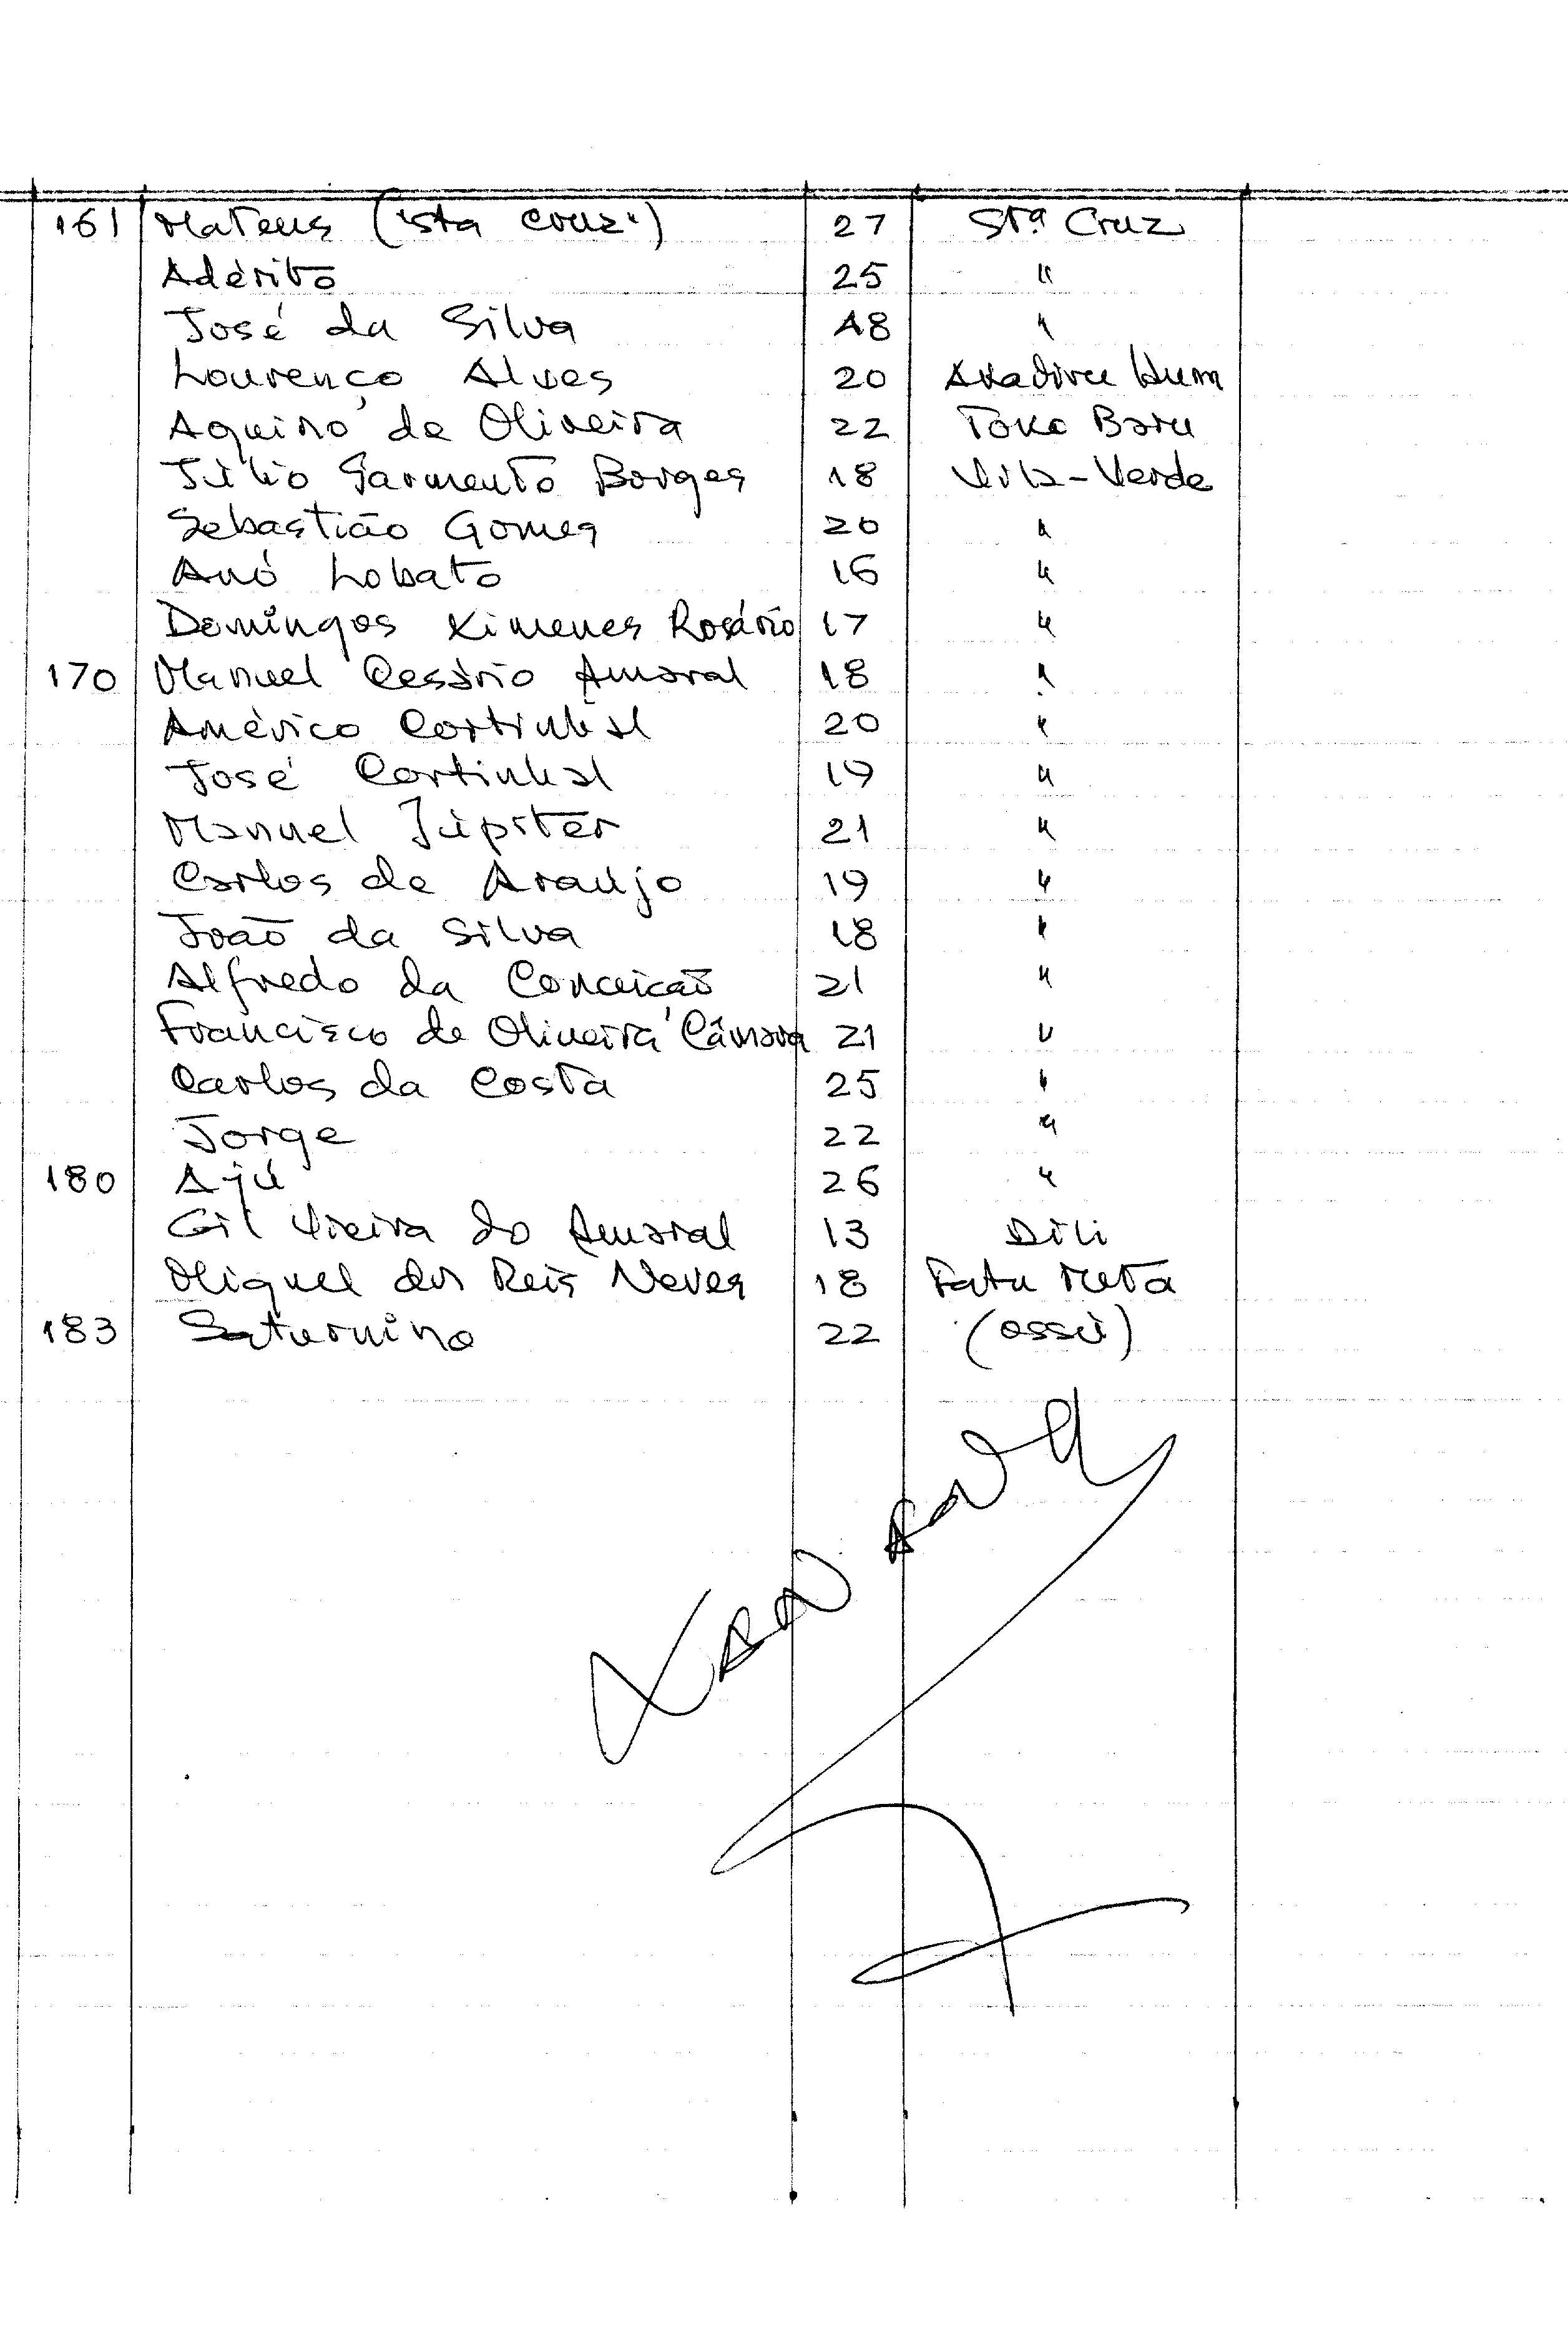 161 Mateus ("sta cruz") 27 Stª Cruz
Adérito 25 "
José da Silva 18 "
Lourenço Alves 20 Akadiru Hum
Aquino de Oliveira 22 Toko Baru
Júlio Sarmento Borges 18 Vila-Verde
Sebastião Gomes 20 "
Anó Lobato 16 "
Domingos Ximenes Rosário 17 "
170 Manuel Cesário Amaral 18 "
Américo Cortinhal 20 "
José Cortinhal 19 "
Manuel Júpiter 21 "
Carlos de Araújo 19 "
João da Silva 18 "
Alfredo da Conceição 21 "
Francisco de Oliveira Câmara 21 "
Carlos da Costa 25 "
Jorge 22 "
180 Ajú 26 "
Gil Vieira do Amaral 13 Dili
Miguel dos Reis Neves 18 Fatu Meta
183 Saturnino 22 (ossú)